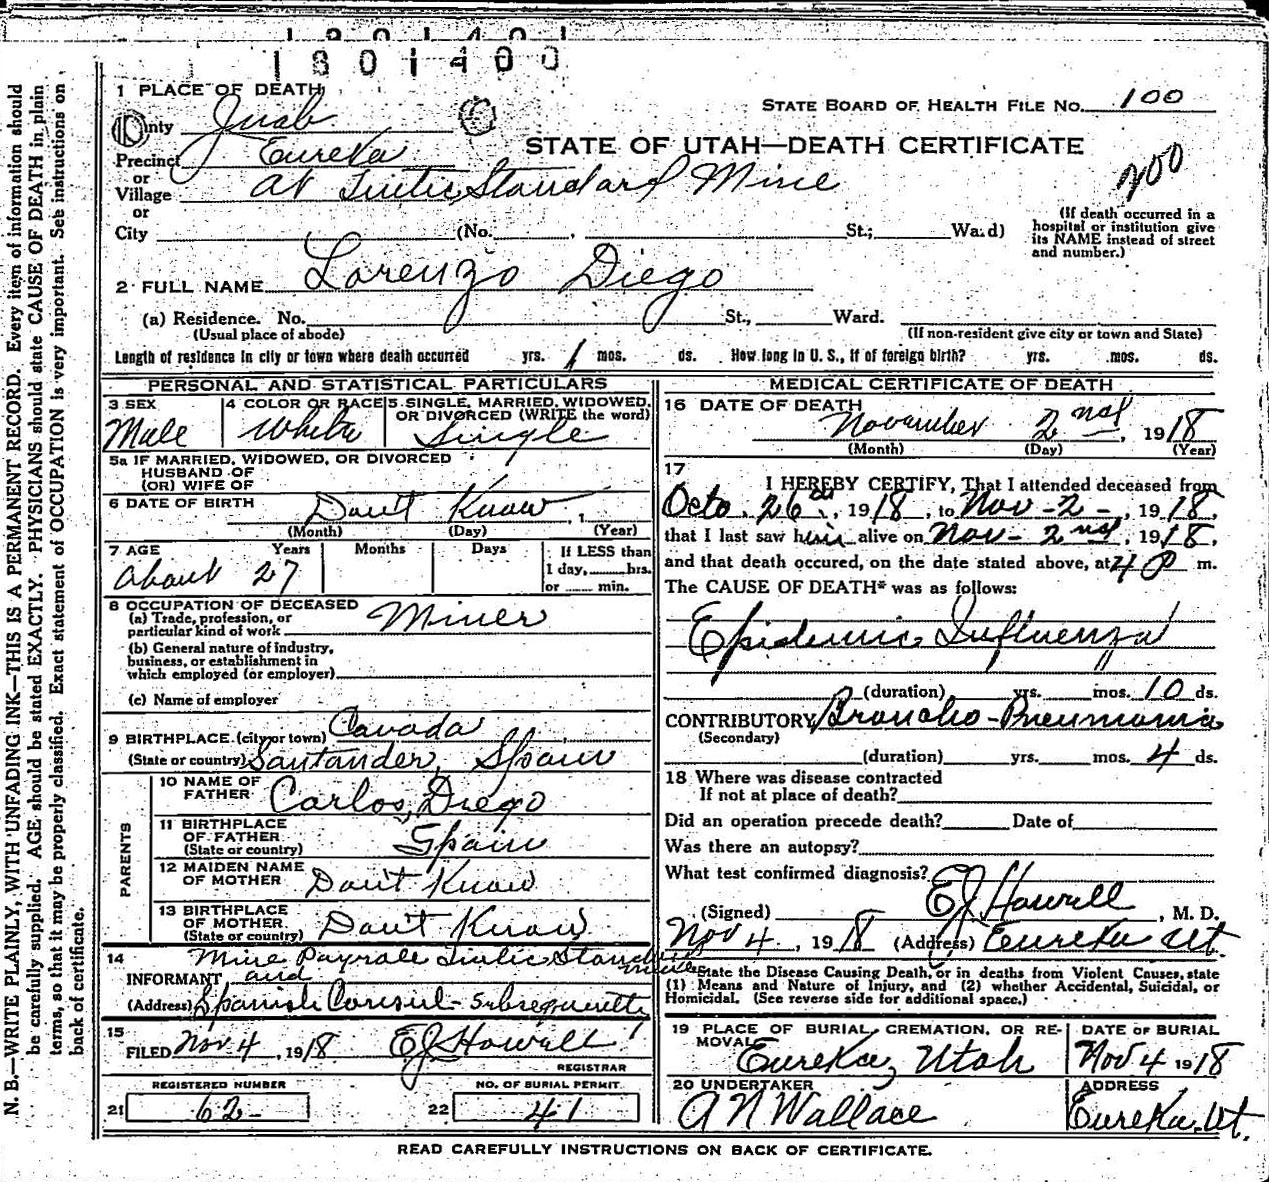 1301400
1 PLACE OF DEATH
STATE BOARD OF HEALTH FILE No. 100
County Juab
STATE OF UTAH—DEATH CERTIFICATE
Precinct Eureka
200
or
Village at Tintic Standard Mine
or
City (No. , St.; Ward)
(If death occurred in a
hospital or institution give
its NAME instead of street
and number.)
2 FULL NAME Lorenzo Diego
(a) Residence. No. St., Ward.
(Usual place of abode) (If non-resident give city or town and State)
Length of residence in city or town where death occurred yrs. 1 mos. ds. How long in U. S., if of foreign birth? yrs. mos. ds.
PERSONAL AND STATISTICAL PARTICULARS
3 SEX
Male
4 COLOR OR RACE
White
5 SINGLE, MARRIED, WIDOWED,
OR DIVORCED (WRITE the word)
Single
5a IF MARRIED, WIDOWED, OR DIVORCED
HUSBAND OF
(OR) WIFE OF
6 DATE OF BIRTH Don't Know , 1
(Month) (Day) (Year)
7 AGE Years Months Days If LESS than
1 day, hrs.
or min.
About 27
8 OCCUPATION OF DECEASED
(a) Trade, profession, or
particular kind of work Miner
(b) General nature of industry,
business, or establishment in
which employed (or employer)
(c) Name of employer
9 BIRTHPLACE (city or town) Cavada
(State or country) Santander, Spain
PARENTS
10 NAME OF
FATHER Carlos Diego
11 BIRTHPLACE
OF FATHER
(State or country) Spain
12 MAIDEN NAME
OF MOTHER Don't Know
13 BIRTHPLACE
OF MOTHER
(State or country) Don't Know
14 Mine Payrole Tintic Stand mine
INFORMANT and
(Address) Spanish Consul - subsequently
15
FILED Nov 4, 1918 EJ Howell
REGISTRAR
REGISTERED NUMBER
21 62
NO. OF BURIAL PERMIT
22 41
MEDICAL CERTIFICATE OF DEATH
16 DATE OF DEATH
November 2nd, 1918
(Month) (Day) (Year)
17
I HEREBY CERTIFY, That I attended deceased from
Octo. 26th, 1918, to Nov - 2 -, 1918,
that I last saw him alive on Nov - 2nd, 1918,
and that death occured, on the date stated above, at 4 P m.
The CAUSE OF DEATH* was as follows:
Epidemic Influenza
(duration) yrs. mos. 10 ds.
CONTRIBUTORY Broncho-Pneumonia
(Secondary)
(duration) yrs. mos. 4 ds.
18 Where was disease contracted
If not at place of death?
Did an operation precede death? Date of
Was there an autopsy?
What test confirmed diagnosis?
(Signed) EJ Howell, M. D.
Nov 4, 1918 (Address) Eureka Ut.
*State the Disease Causing Death, or in deaths from Violent Causes, state
(1) Means and Nature of Injury, and (2) whether Accidental, Suicidal, or
Homicidal. (See reverse side for additional space.)
19 PLACE OF BURIAL, CREMATION, OR RE-
MOVAL
Eureka, Utah
DATE OF BURIAL
Nov 4 1918
20 UNDERTAKER
A N Wallace
ADDRESS
Eureka, Ut.
READ CAREFULLY INSTRUCTIONS ON BACK OF CERTIFICATE.
N. B.—WRITE PLAINLY, WITH UNFADING INK—THIS IS A PERMANENT RECORD. Every item of information should
be carefully supplied. AGE should be stated EXACTLY. PHYSICIANS should state CAUSE OF DEATH in plain
terms, so that it may be properly classified. Exact statement of OCCUPATION is very important. See instructions on
back of certificate.